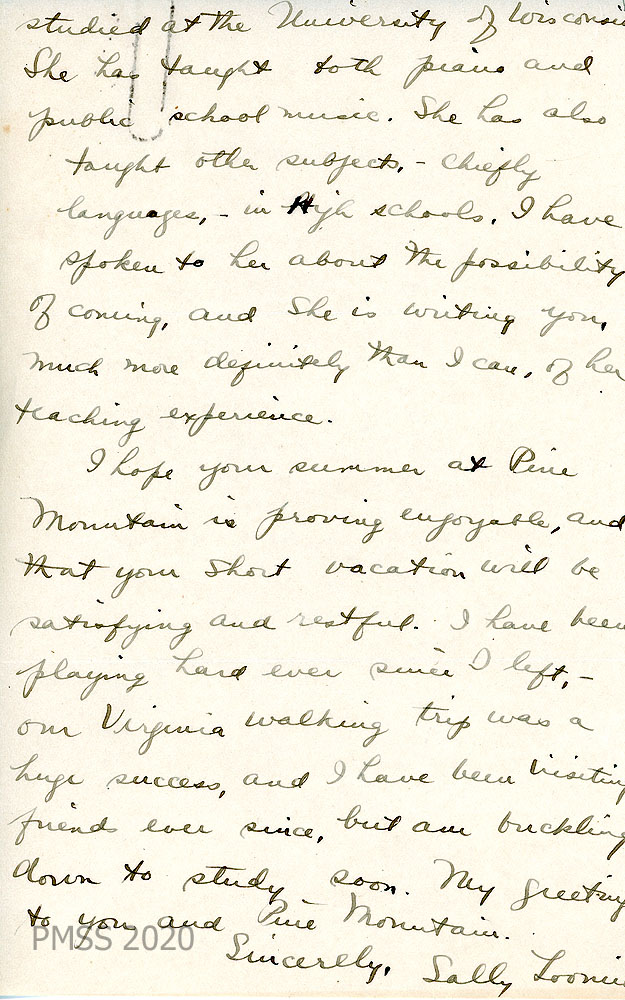 studied at the University of Wisconsin
She has taught both piano and
public school music. She has also
taught other subjects, - chiefly
languages, - in High schools. I have
spoken to her about the possibility
of coming, and she is writing you,
much more definitely than I can, of her
teaching experience.
I hope your summer at Pine
Mountain is proving enjoyable, and
that your short vacation will be
satisfying and restful. I have been
playing hard ever since I left, -
our Virginia walking trip was a
huge success, and I have been visiting
friends ever since, but am buckling
down to study soon. My greeting
to you and Pine Mountain.
Sincerely,
Sally Loomis
PMSS 2020